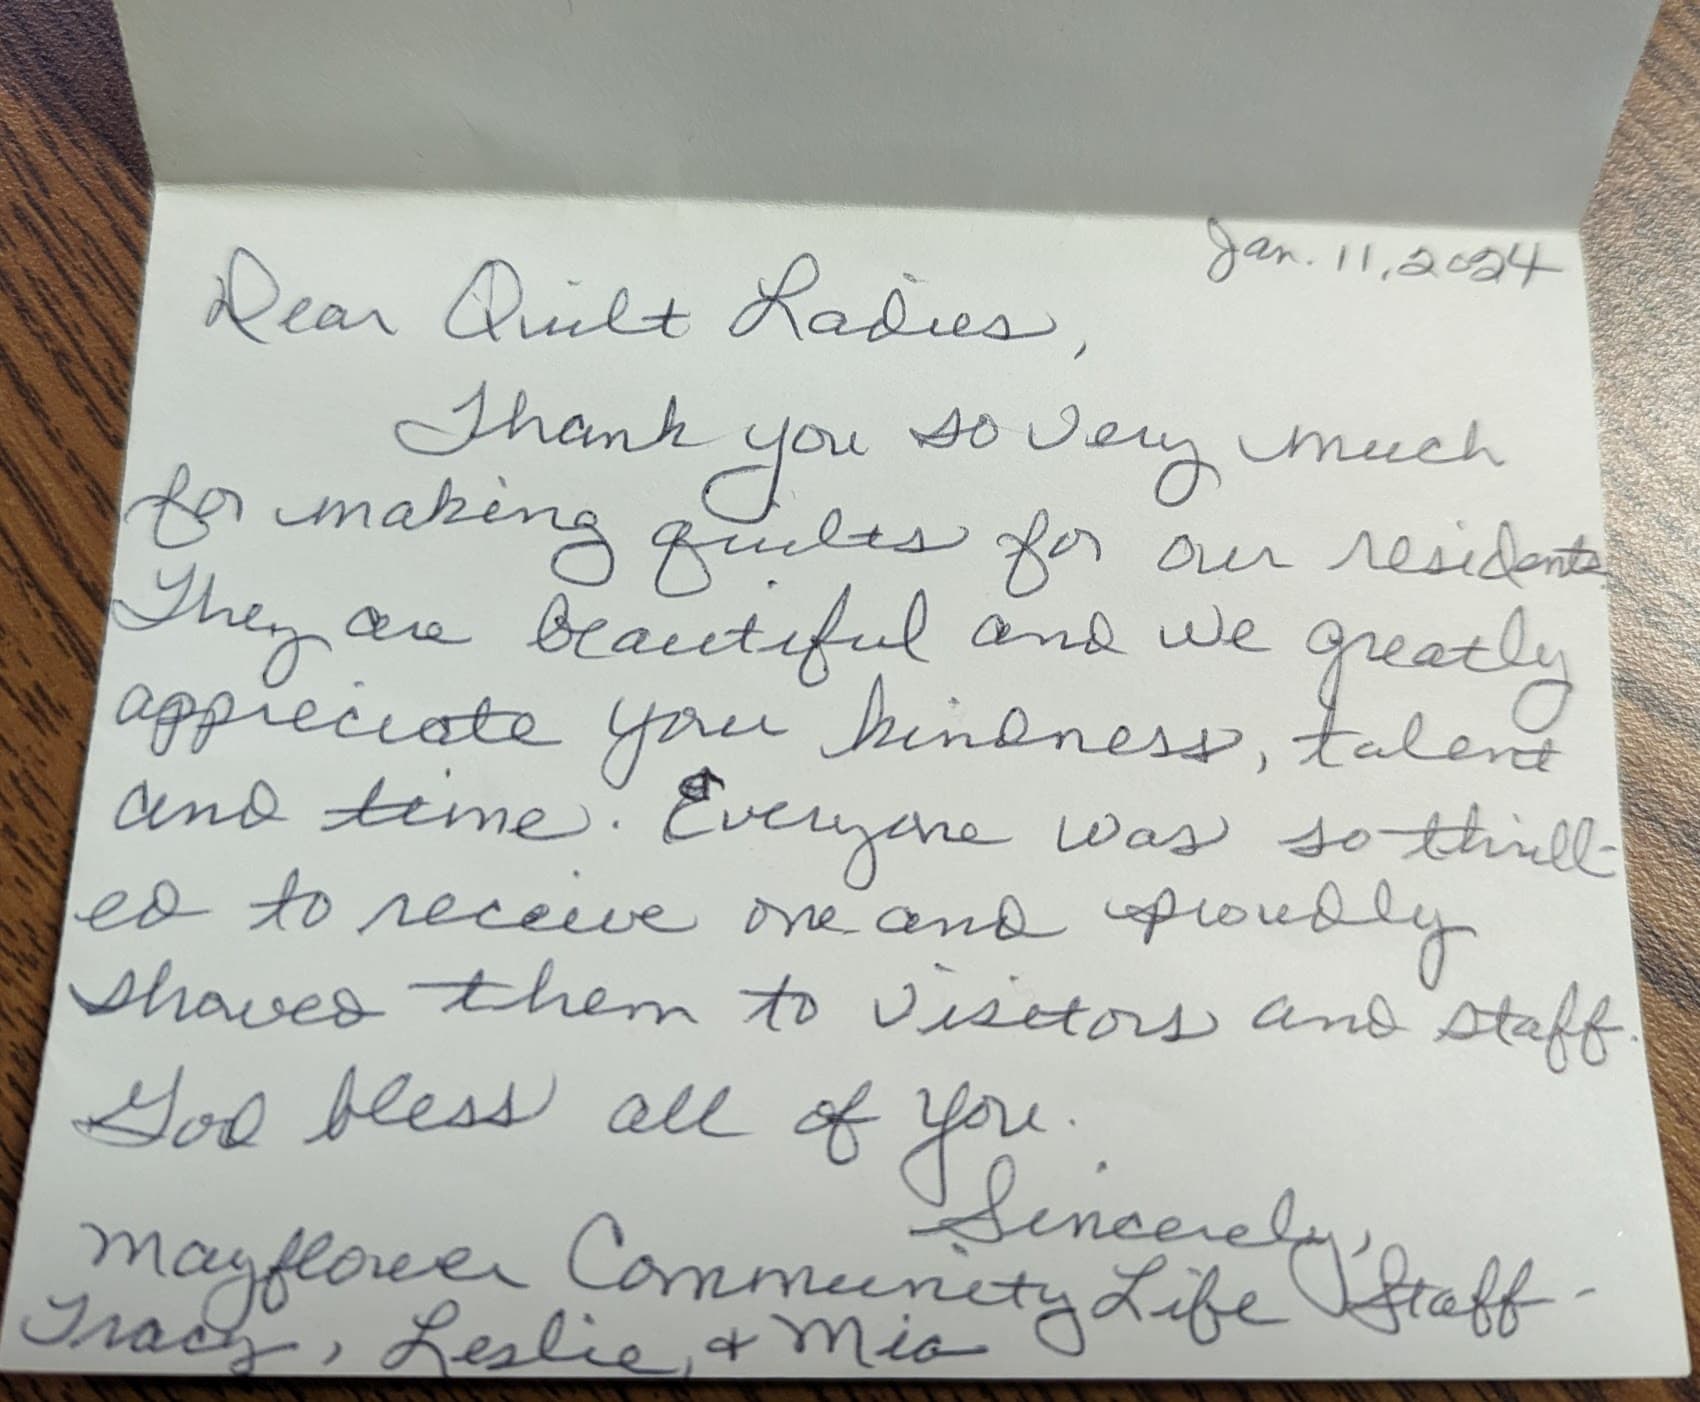 Jan. 11, 2024
Dear Quilt Ladies,
Thank you so very much
for making quilts for our residents.
They are beautiful and we greatly
appreciate your kindness, talent
and time. Everyone was so thrill-
ed to receive one and proudly
showed them to visitors and staff.
God bless all of you.
Sincerely,
Mayflower Community Life Staff -
Tracy, Leslie, & Mia